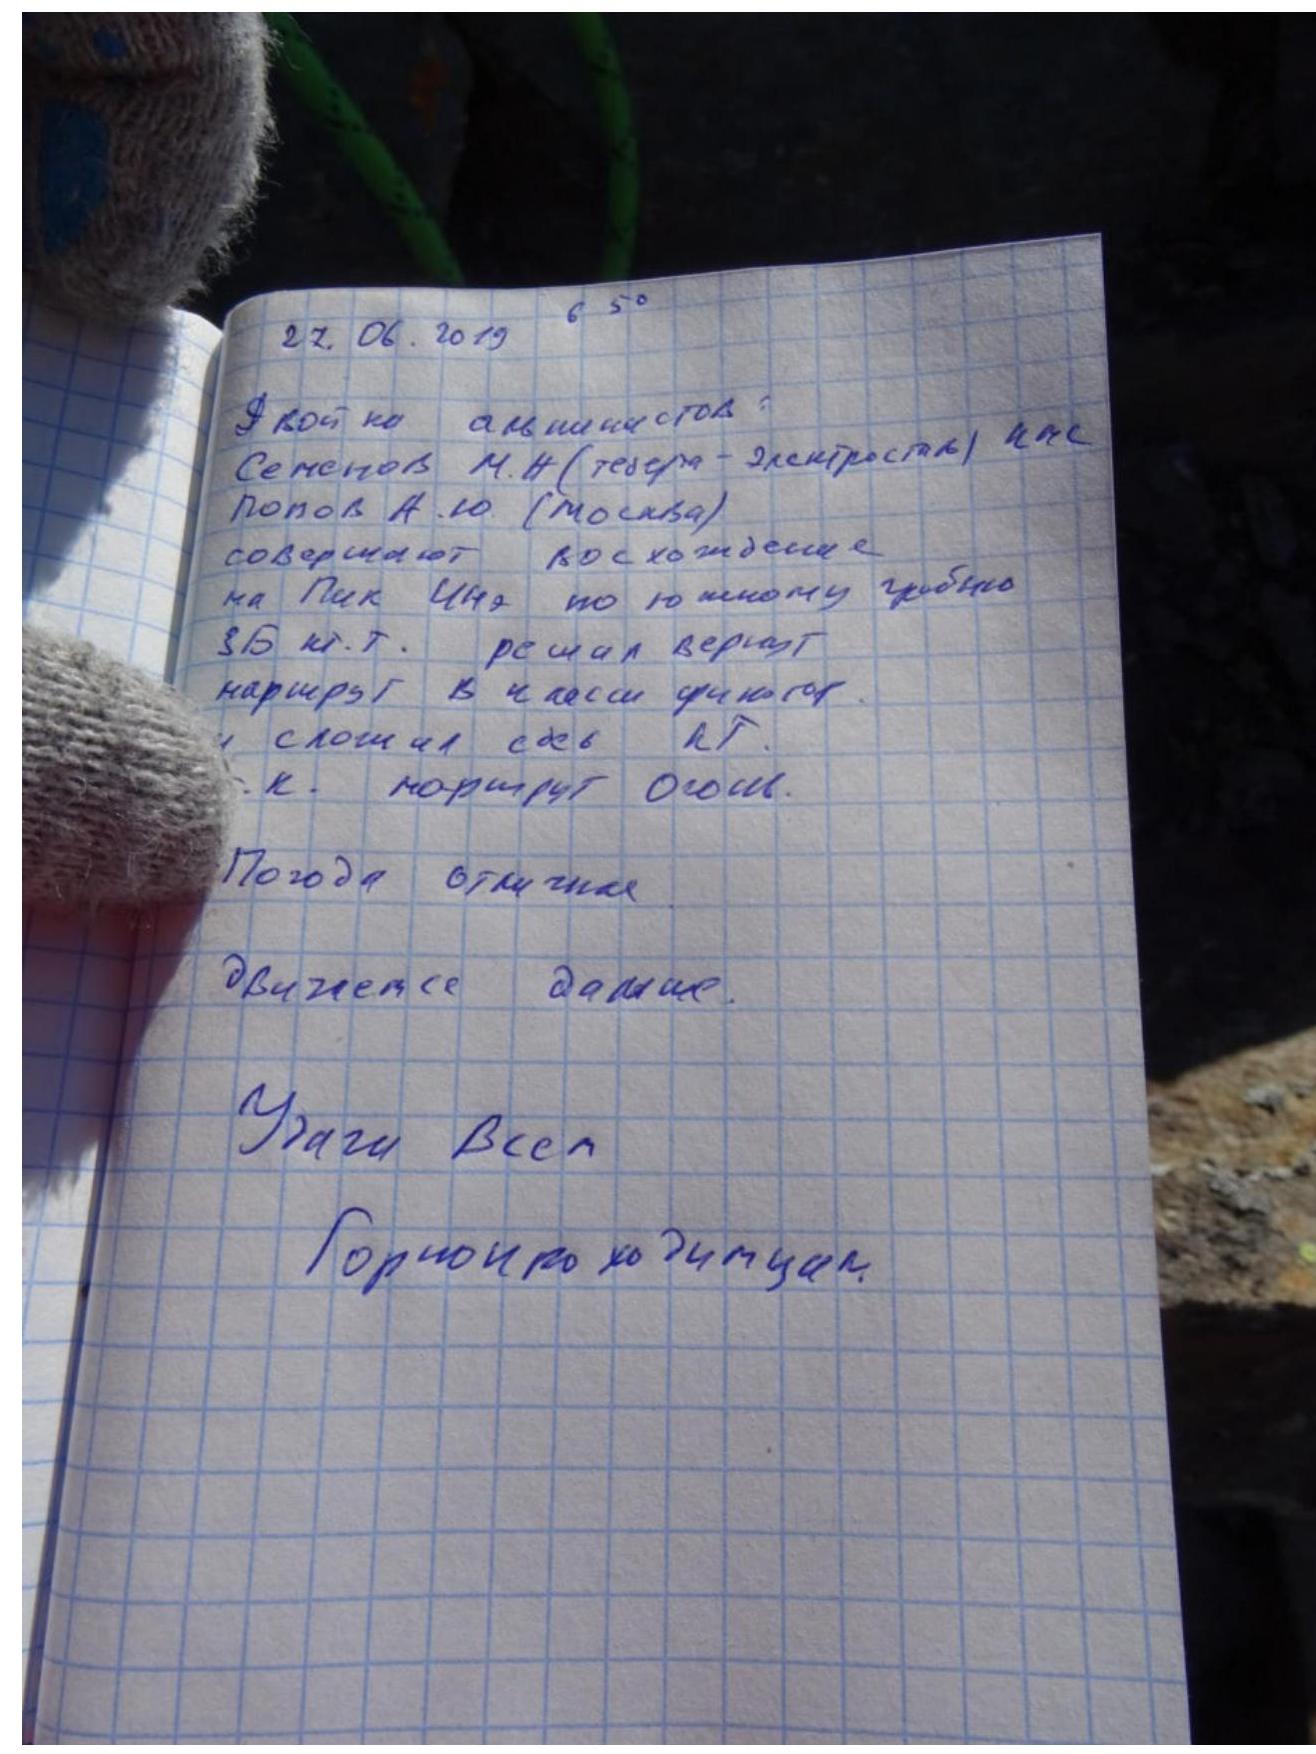 27. 06. 2019 6 50
Двойка альпинистов:
Семенов М.А (теберда - Электросталь) кмс
Попов А.Ю. (Москва)
совершают восхождение
на Пик Инэ по южному гребню
3Б к.т. решил вернут
маршрут в классификатор.
и сложил сдесь КТ.
т.к. маршрут Огонь.
Погода отличная
движемся дальше.
Удачи Всем
Горнопроходимцам.